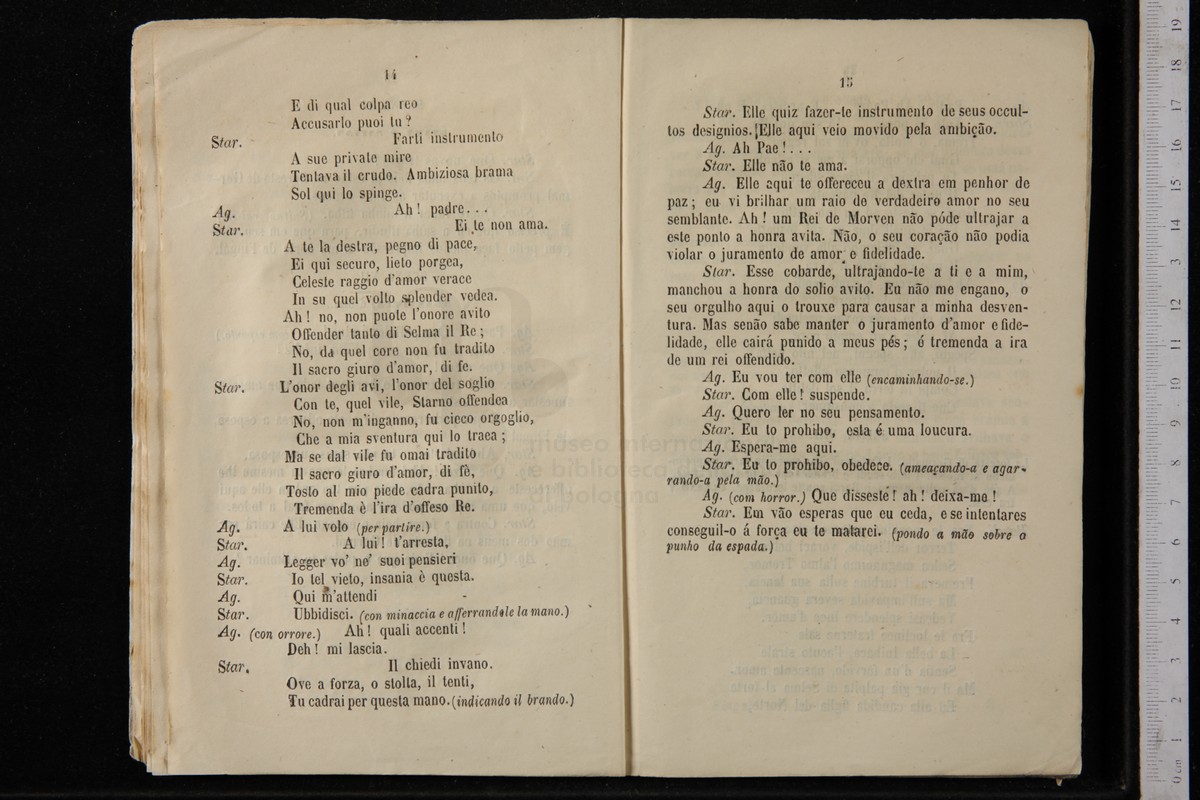 14
E di qual colpa reo
Accusarlo puoi tu?
Star. Farti instrumento
A sue private mire
Tentava il crudo. Ambiziosa brama
Sol qui lo spinge.
Ag. Ah! padre...
Star. Ei te non ama.
A te la destra, pegno di pace,
Ei qui securo, lieto porgea,
Celeste raggio d'amor verace
In su quel volto splender vedea.
Ah! no, non puote l'onore avito
Offender tanto di Selma il Re;
No, da quel core non fu tradito
Il sacro giuro d'amor, di fe.
Star. L'onor degli avi, l'onor del soglio
Con te, quel vile, Starno offendea
No, non m'inganno, fu cieco orgoglio,
Che a mia sventura qui lo traea;
Ma se dal vile fu omai tradito
Il sacro giuro d'amor, di fè,
Tosto al mio piede cadra punito,
Tremenda è l'ira d'offeso Re.
Ag. A lui volo (per partire.)
Star. A lui! t'arresta,
Ag. Legger vo' ne' suoi pensieri
Star. Io tel vieto, insania è questa.
Ag. Qui m'attendi
Star. Ubbidisci. (con minaccia e afferrandole la mano.)
Ag. (con orrore.) Ah! quali accenti!
Deh! mi lascia.
Star. Il chiedi invano.
Ove a forza, o stolta, il tenti,
Tu cadrai per questa mano. (indicando il brando.)
15
Star. Elle quiz fazer-te instrumento de seus occul-
tos designios. Elle aqui veio movido pela ambição.
Ag. Ah Pae!...
Star. Elle não te ama.
Ag. Elle aqui te offereceu a dextra em penhor de
paz; eu vi brilhar um raio de verdadeiro amor no seu
semblante. Ah! um Rei de Morven não póde ultrajar a
este ponto a honra avita. Não, o seu coração não podia
violar o juramento de amor e fidelidade.
Star. Esse cobarde, ultrajando-te a ti e a mim,
manchou a honra do solio avito. Eu não me engano, o
seu orgulho aqui o trouxe para causar a minha desven-
tura. Mas senão sabe manter o juramento d'amor e fide-
lidade, elle cairá punido a meus pés; é tremenda a ira
de um rei offendido.
Ag. Eu vou ter com elle (encaminhando-se.)
Star. Com elle! suspende.
Ag. Quero ler no seu pensamento.
Star. Eu to prohibo, esta é uma loucura.
Ag. Espera-me aqui.
Star. Eu to prohibo, obedece. (ameaçando-a e agar-
rando-a pela mão.)
Ag. (com horror.) Que disseste! ah! deixa-me!
Star. Em vão esperas que eu ceda, e se intentares
conseguil-o á força eu te matarei. (pondo a mão sobre o
punho da espada.)